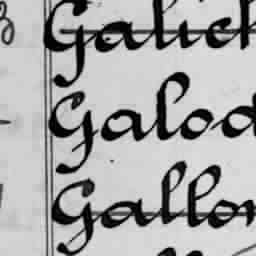 Galich
Galod
Gallon